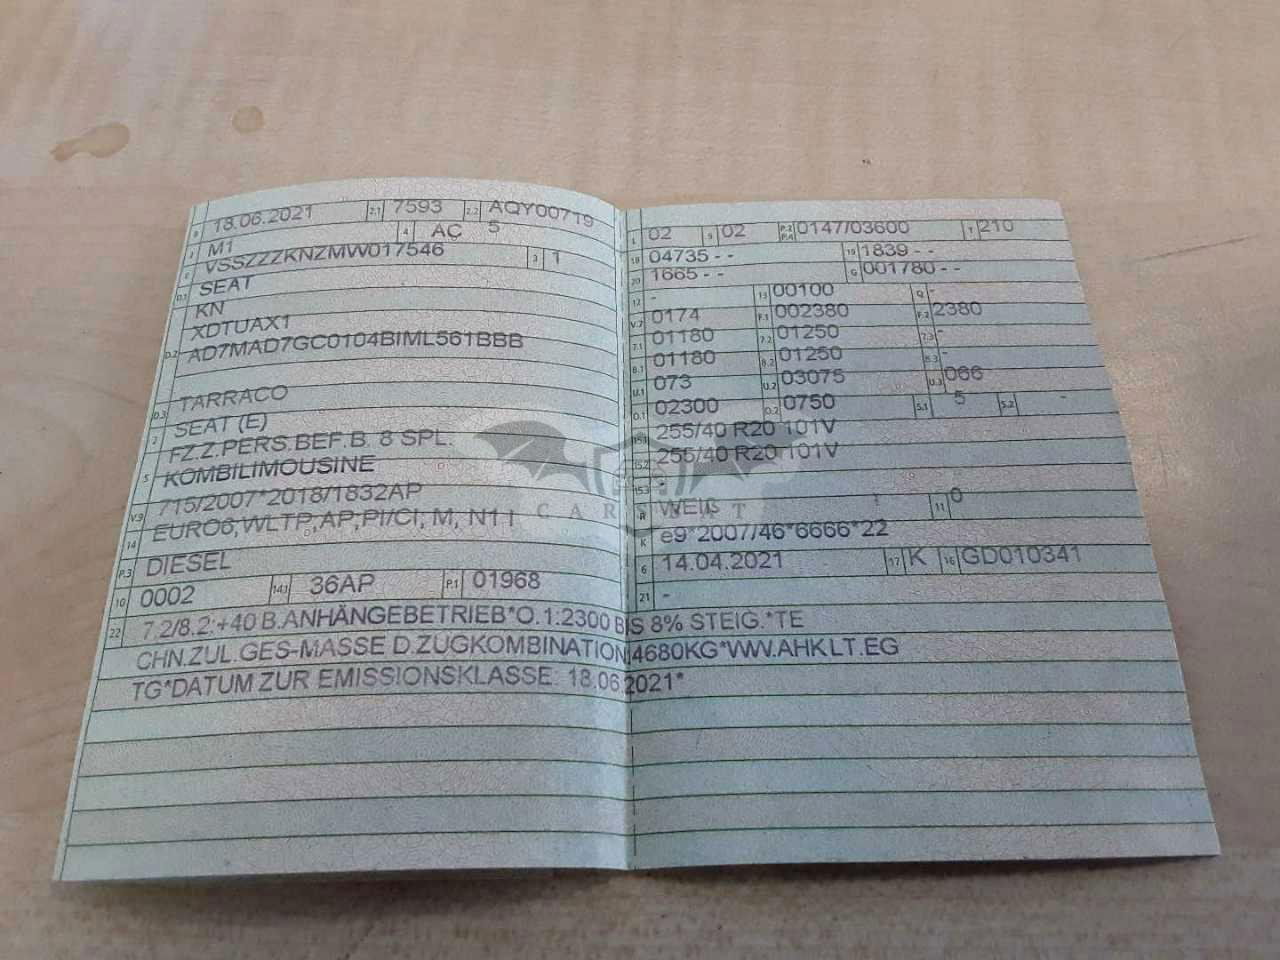 B 18.06.2021 2.1 7593 2.2 AQY00719 5
J M1 4 AC
E VSSZZZKNZMW017546 3 1
D.1 SEAT
KN
D.2 XDTUAX1
AD7MAD7GC0104BIML561BBB
D.3 TARRACO
2 SEAT (E)
5 FZ.Z.PERS.BEF.B. 8 SPL.
KOMBILIMOUSINE
V.9 715/2007*2018/1832AP
14 EURO6;WLTP;AP;PI/CI; M, N1 I
P.3 DIESEL
10 0002 14.1 36AP P.1 01968
L 02 9 02 P.2 P.4 0147/03600 T 210
18 04735 - - 19 1839 - -
20 1665 - - G 001780 - -
12 - 13 00100 Q -
V.7 0174 F.1 002380 F.2 2380
7.1 01180 7.2 01250 7.3 -
8.1 01180 8.2 01250 8.3 -
U.1 073 U.2 03075 U.3 066
O.1 02300 O.2 0750 S.1 5 S.2 -
15.1 255/40 R20 101V
15.2 255/40 R20 101V
15.3 -
R WEIß 11 0
K e9*2007/46*6666*22
6 14.04.2021 17 K 16 GD010341
21 -
22 7.2/8.2:+40 B.ANHÄNGEBETRIEB*O.1:2300 BIS 8% STEIG.*TE
CHN.ZUL.GES-MASSE D.ZUGKOMBINATION 4680KG*WW.AHK LT.EG
TG*DATUM ZUR EMISSIONSKLASSE: 18.06.2021*